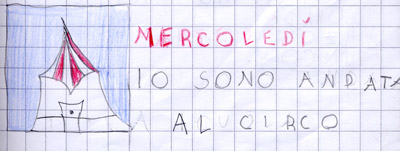 MERCOLEDÍ
IO SONO ANDATA
AL CIRCO